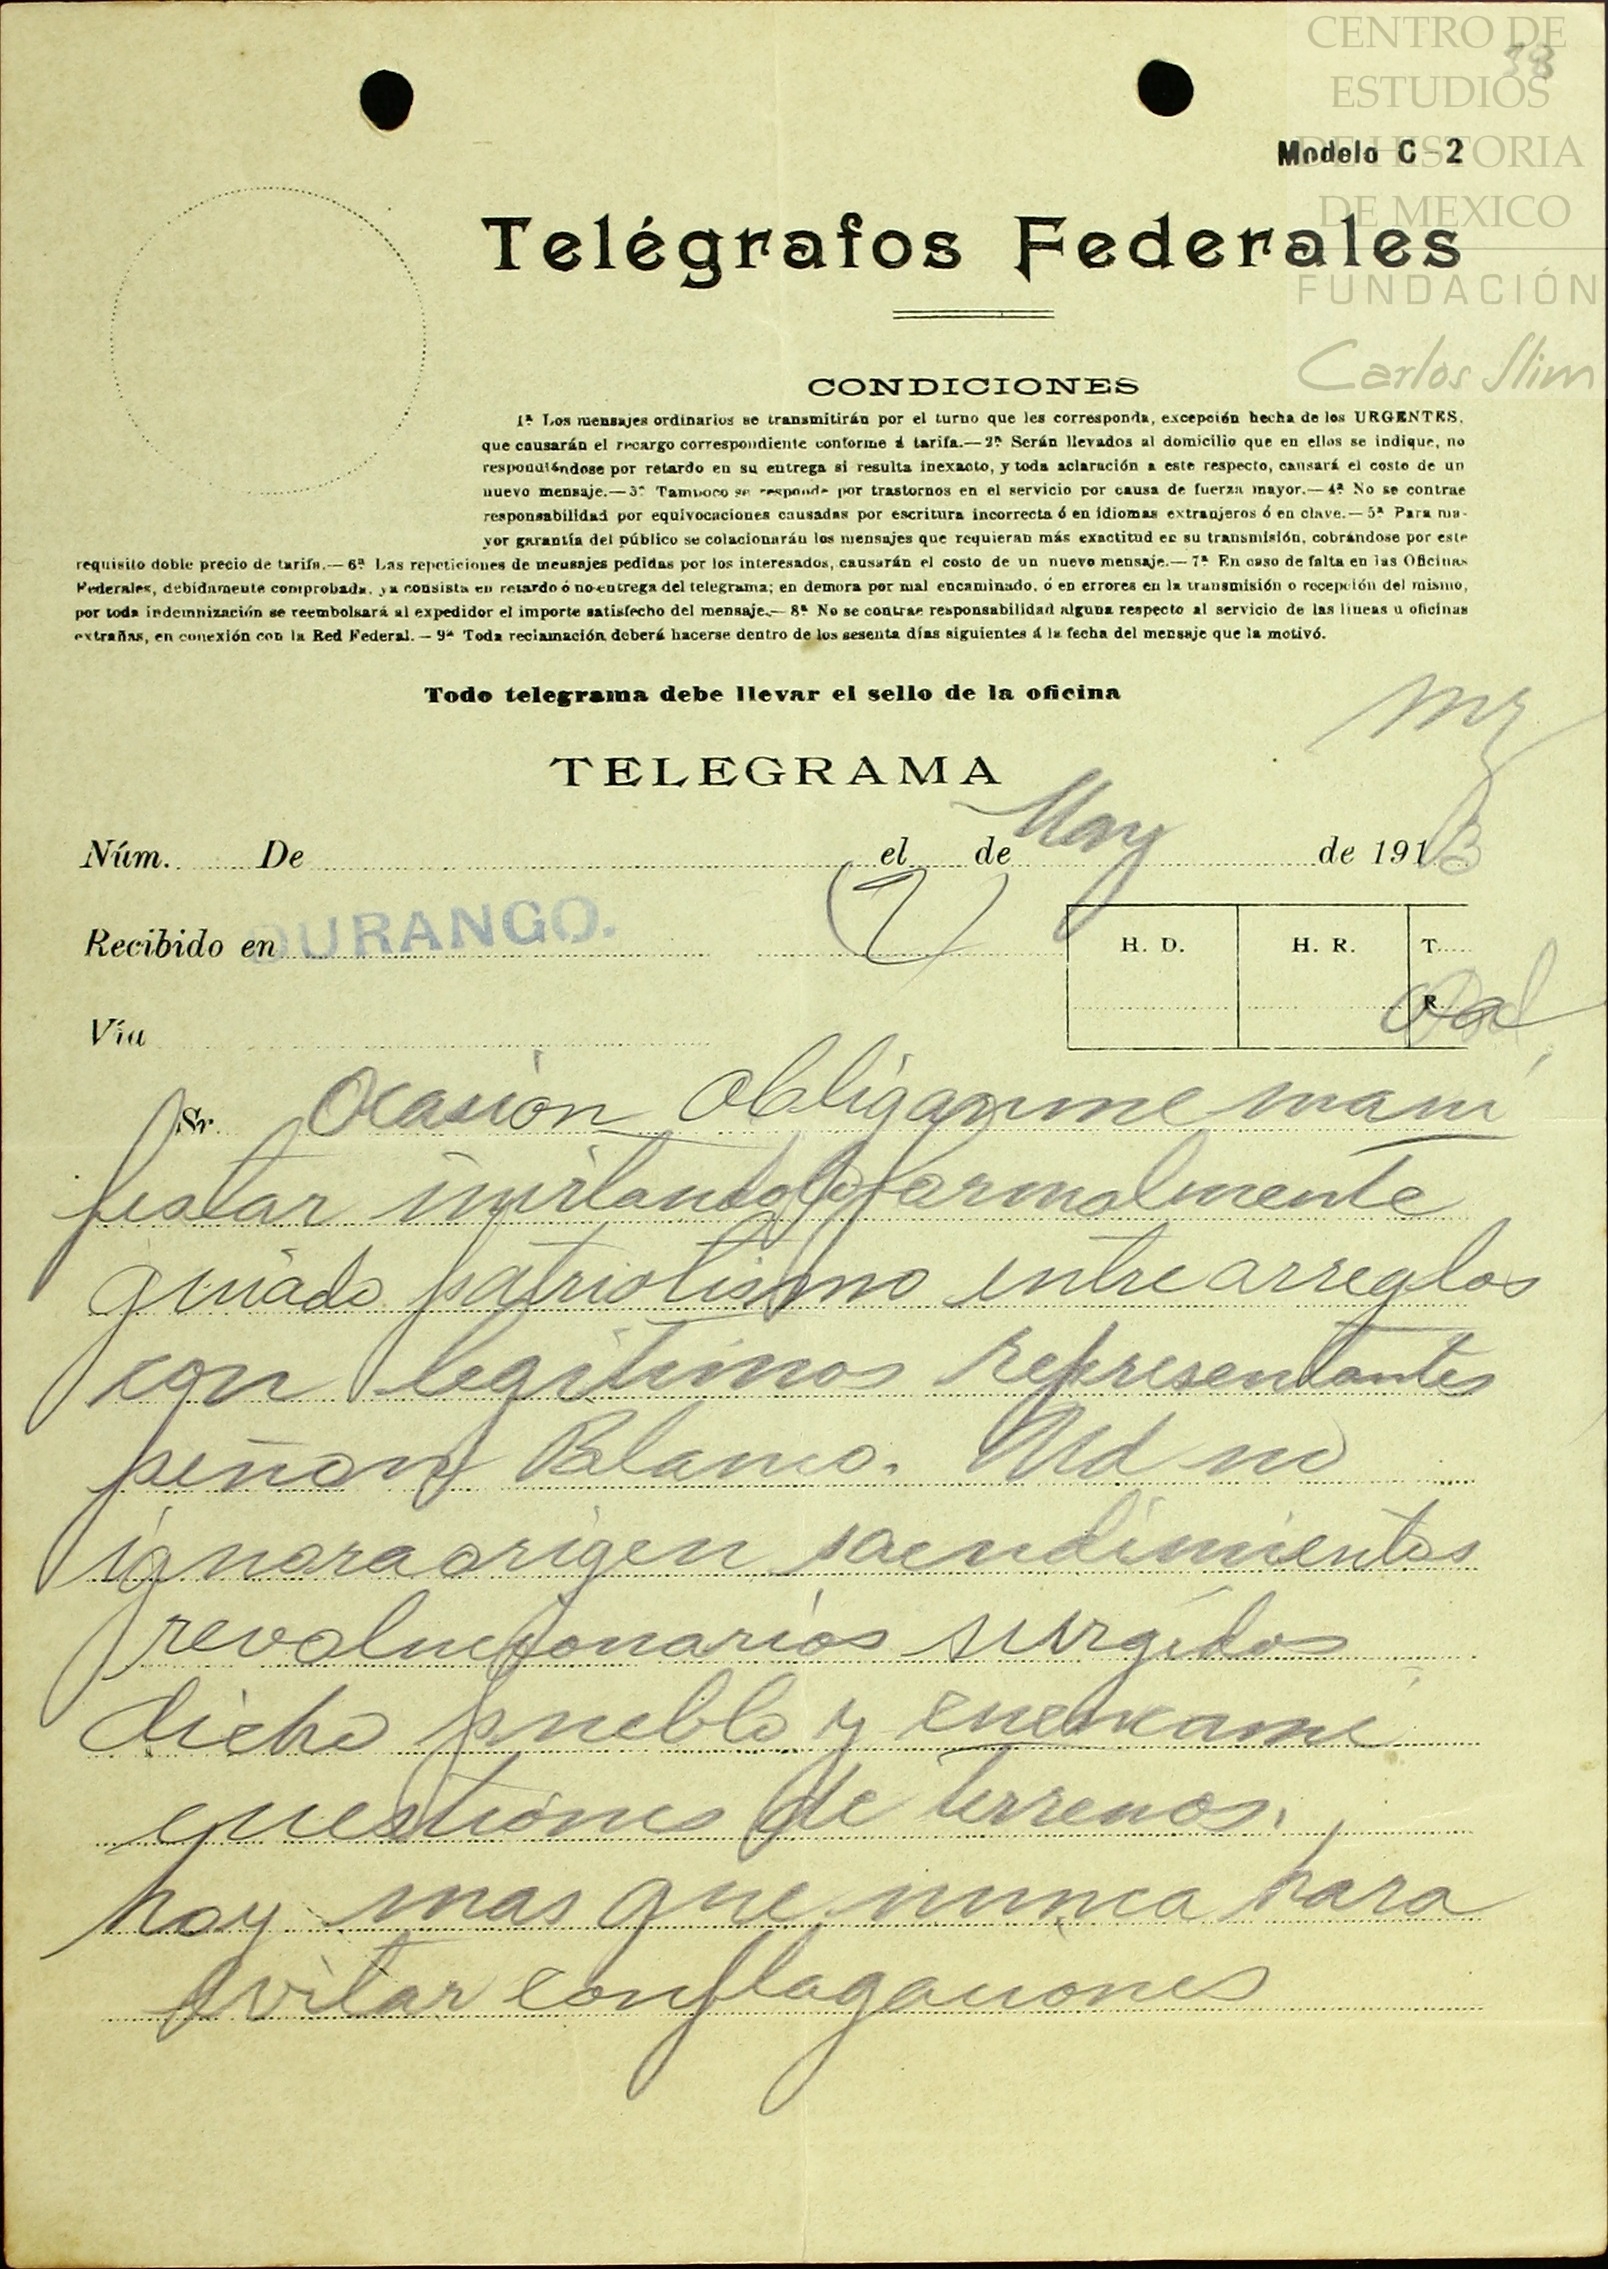 CENTRO DE
ESTUDIOS
DE HISTORIA
DE MEXICO
FUNDACIÓN
Carlos Slim
Modelo C-2
Telégrafos Federales
CONDICIONES
1ª Los mensajes ordinarios se transmitirán por el turno que les corresponda, excepción hecha de los URGENTES,
que causarán el recargo correspondiente conforme á tarifa.—2ª Serán llevados al domicilio que en ellos se indique, no
respondiéndose por retardo en su entrega si resulta inexacto, y toda aclaración a este respecto, causará el costo de un
nuevo mensaje.—3ª Tampoco se responde por trastornos en el servicio por causa de fuerza mayor.—4ª No se contrae
responsabilidad por equivocaciones causadas por escritura incorrecta ó en idiomas extranjeros ó en clave.—5ª Para ma-
yor garantía del público se colacionarán los mensajes que requieran más exactitud en su transmisión, cobrándose por este
requisito doble precio de tarifa.—6ª Las repeticiones de mensajes pedidas por los interesados, causarán el costo de un nuevo mensaje.—7ª En caso de falta en las Oficinas
Federales, debidamente comprobada, ya consista en retardo ó no entrega del telegrama; en demora por mal encaminado, ó en errores en la transmisión o recepción del mismo,
por toda indemnización se reembolsará al expedidor el importe satisfecho del mensaje.—8ª No se contrae responsabilidad alguna respecto al servicio de las lineas u oficinas
extrañas, en conexión con la Red Federal.—9ª Toda reclamación deberá hacerse dentro de los sesenta días siguientes á la fecha del mensaje que la motivó.
Todo telegrama debe llevar el sello de la oficina
TELEGRAMA
Núm. De el de May de 1913
Recibido en DURANGO. (2) H. D. H. R. T.
R.
Vía
Sr. Ocasion obligame mani
festar invitandolo formalmente
guiado patriotismo entre arreglos
con legitimos representantes
peñon Blanco. Ud no
ignora origen sacudimientos
revolucionarios surgidos
dicho pueblo y cuencame
cuestiones de terrenos.
hoy mas que nunca para
evitar conflagaciones